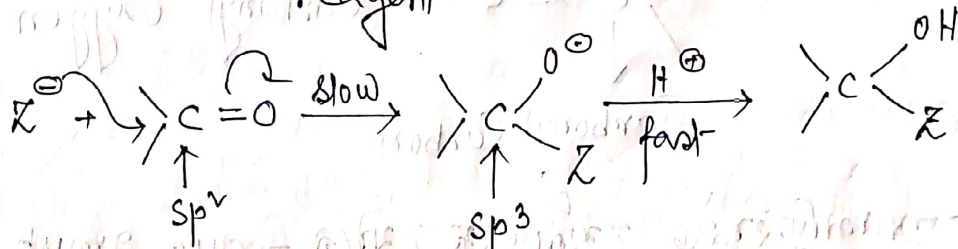 Z⊖ + >C=O slow → >C(O⊖)(Z) H⊕ fast → >C(OH)(Z)
↑ sp² ↑ sp³